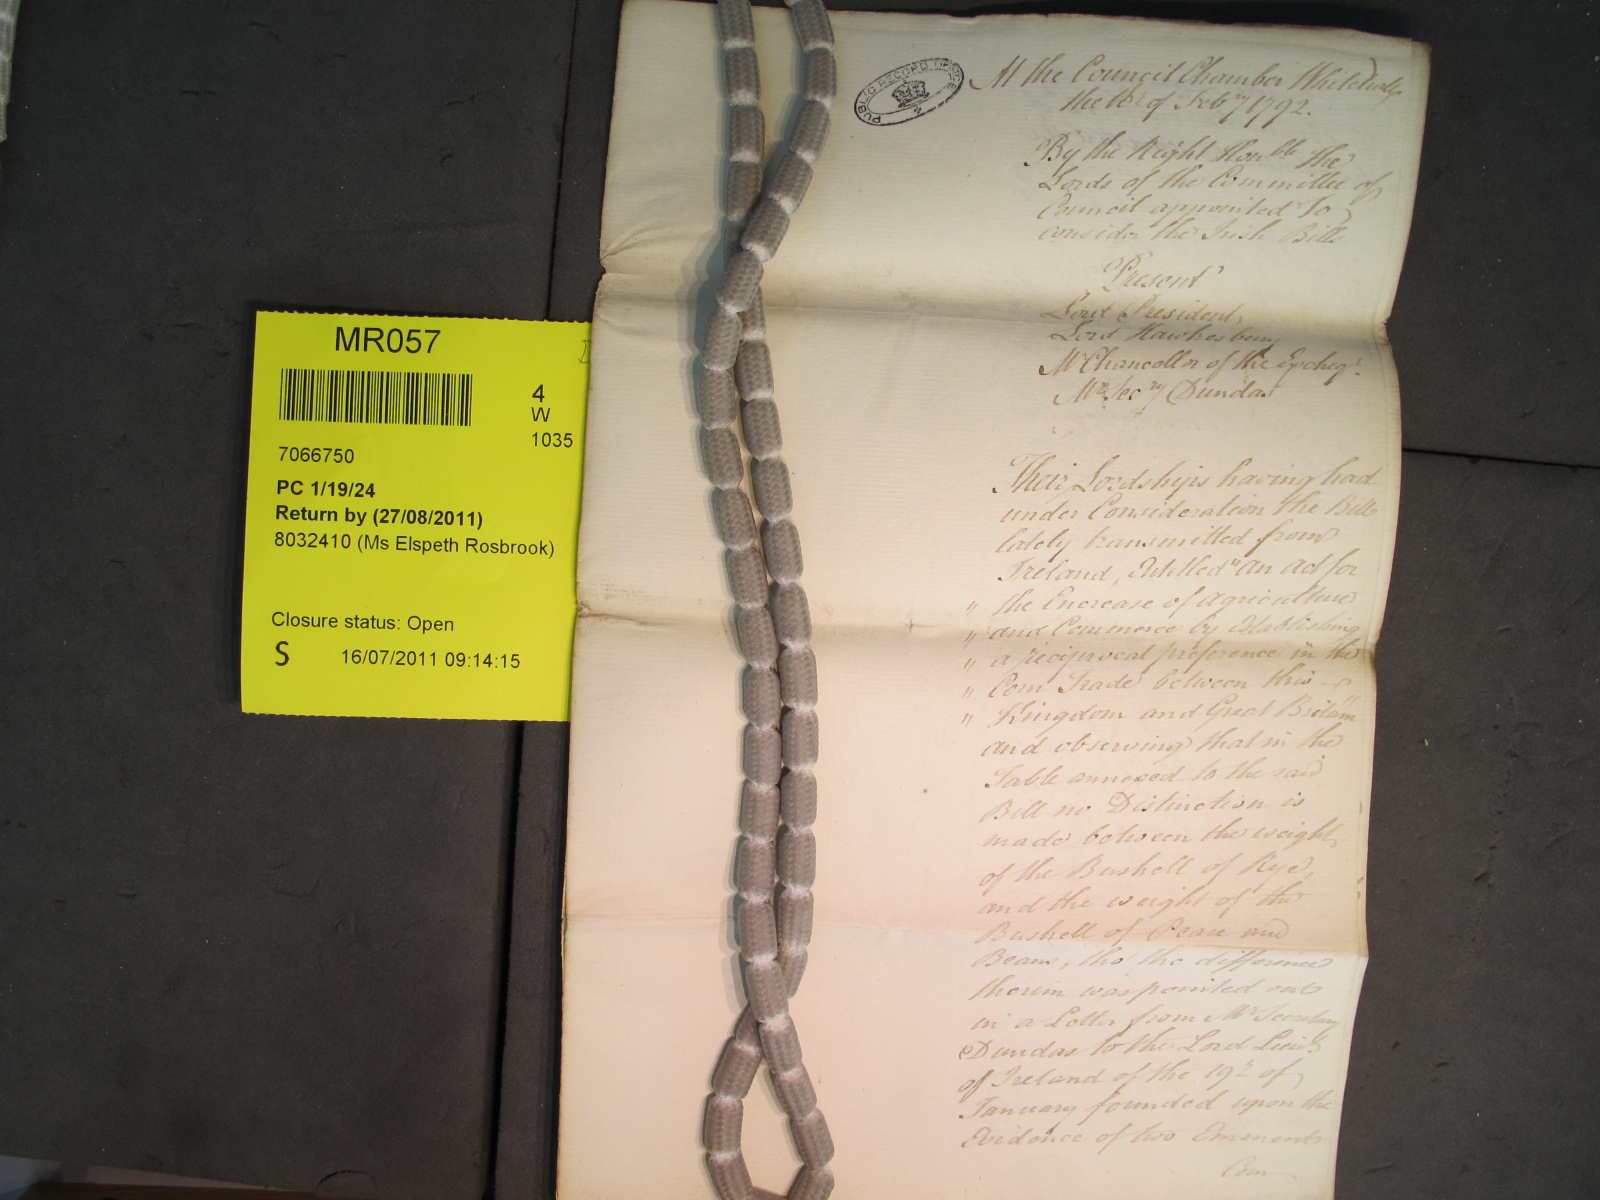 MR057
4
W
1035
7066750
PC 1/19/24
Return by (27/08/2011)
8032410 (Ms Elspeth Rosbrook)
Closure status: Open
S 16/07/2011 09:14:15
PUBLIC RECORD OFFICE
At the Council Chamber Whitehall
the of Febry 1792.
By the Right Honble the
Lords of the Committee of
Council appointed to
consider the Irish Bills
Present
Lord President,
Lord Hawkesbury
Mr Chancellor of the Excheqr.
Mr Secry Dundas
Their Lordships having had
under Consideration the Bill
lately transmitted from
Ireland, Entitled "An Act for
" the Encrease of Agriculture
" and Commerce by Establishing
" a reciprocal preference in the
" Corn Trade between this
" Kingdom and Great Britain"
and observing that in the
Table annexed to the said
Bill no Distinction is
made between the weight
of the Bushell of Rye,
and the weight of the
Bushell of Pease and
Beans, tho' the difference
therein was pointed out
in a Letter from Mr Secretary
Dundas to the Lord Lieut.
of Ireland of the 19th of
January founded upon the
Evidence of two Eminent
Corn